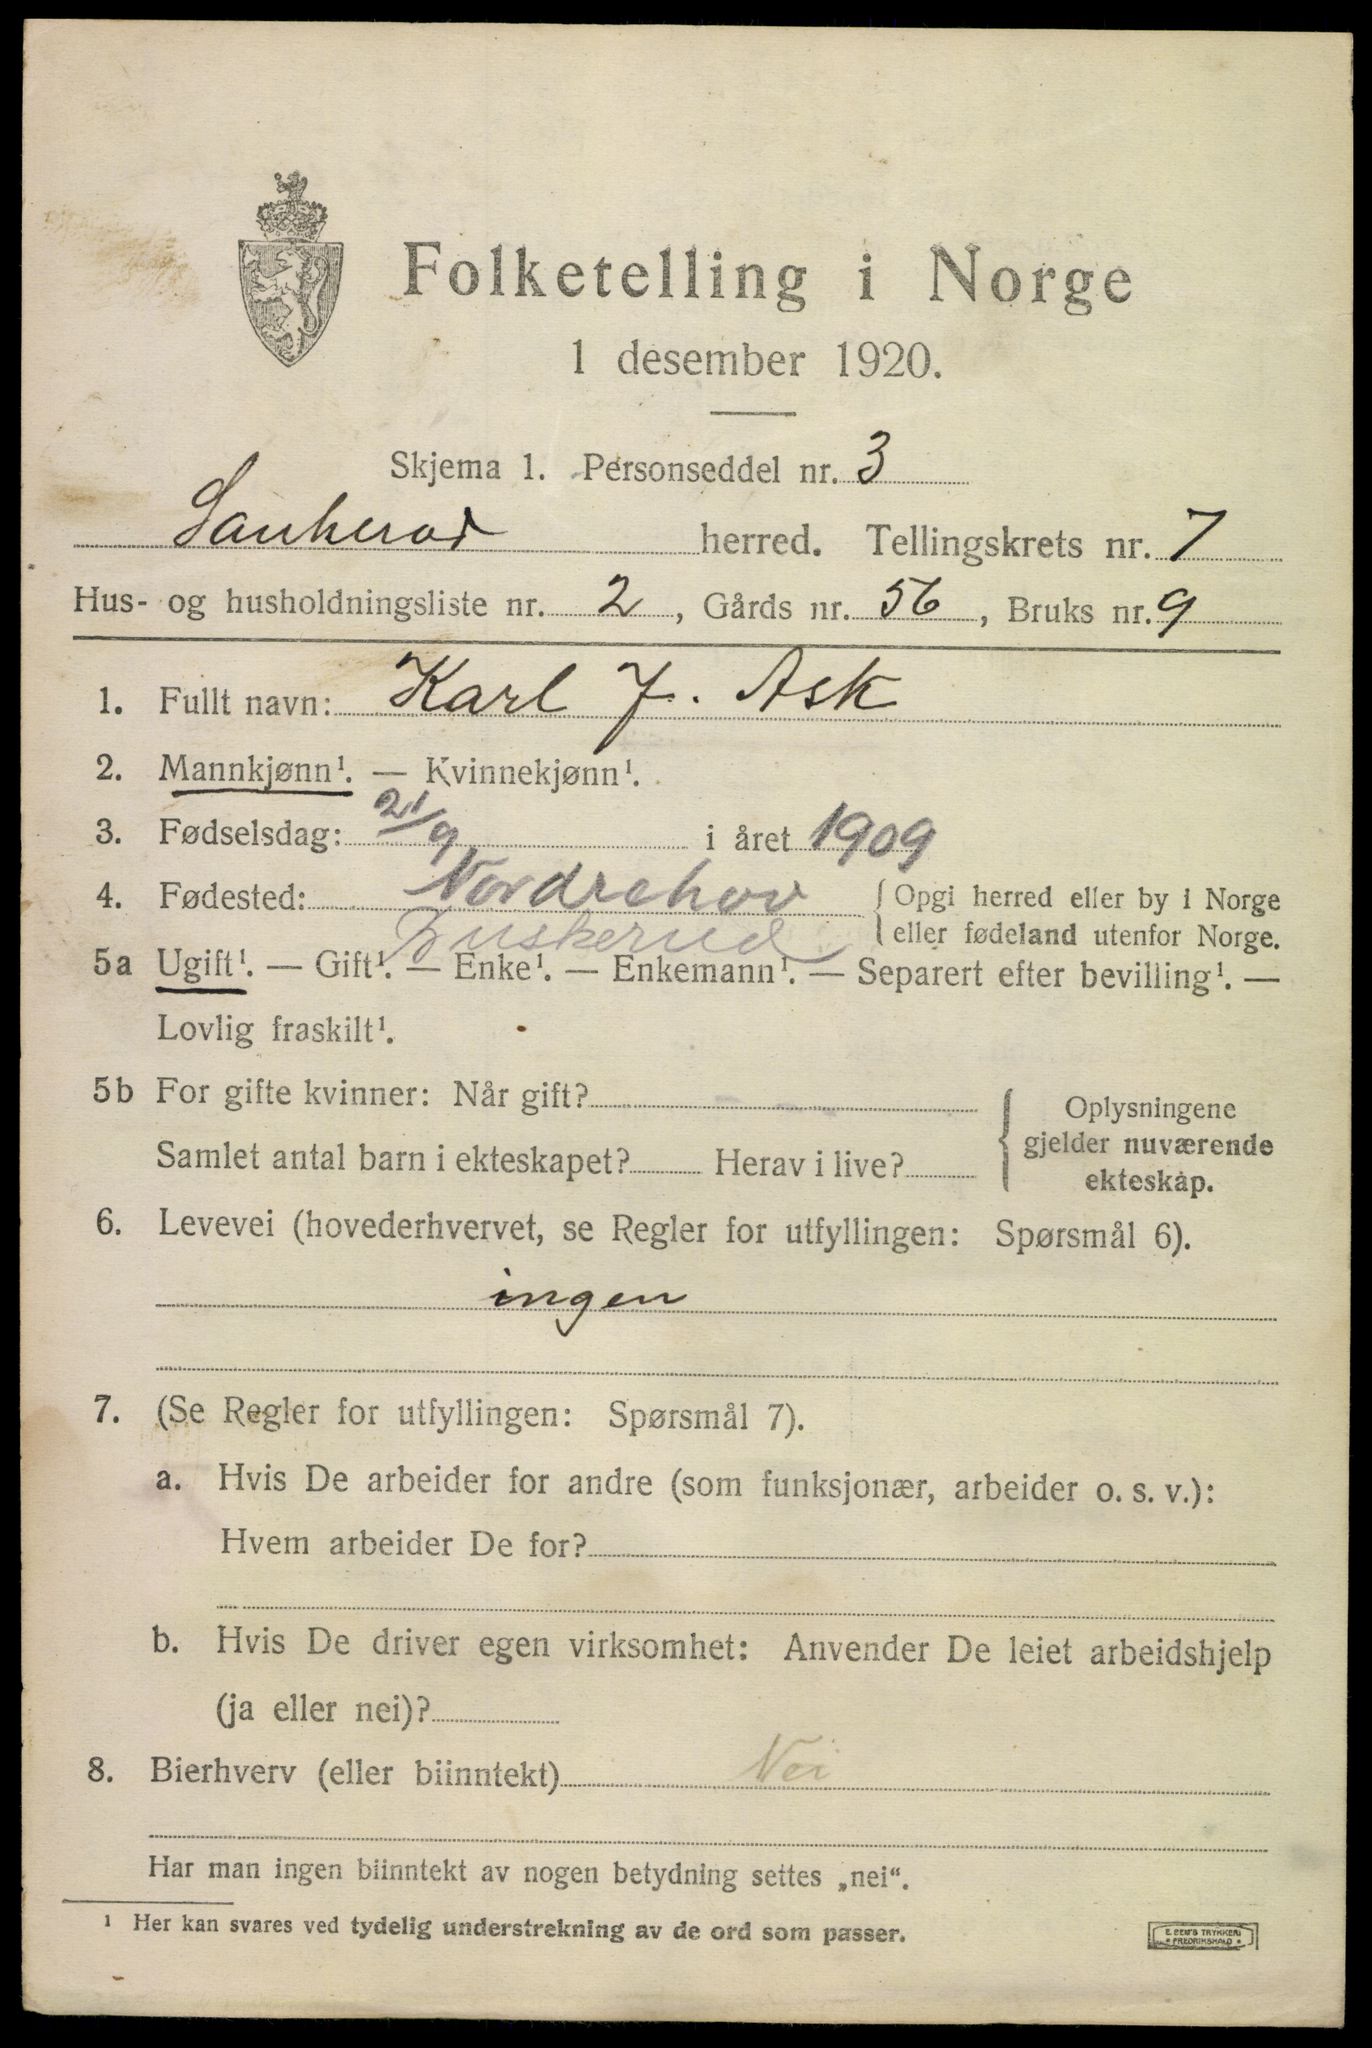 Folketelling i Norge
1 desember 1920.
Skjema 1. Personseddel nr. 3
Sauherad herred. Tellingskrets nr. 7
Hus- og husholdningsliste nr. 2, Gårds nr. 56, Bruks nr. 9
1. Fullt navn: Karl J. Ask
2. Mannkjønn¹. — Kvinnekjønn¹.
3. Fødselsdag: 21/9 i året 1909
4. Fødested: Nordrehov { Opgi herred eller by i Norge
Buskerud eller fødeland utenfor Norge.
5a Ugift¹. — Gift¹. — Enke¹. — Enkemann¹. — Separert efter bevilling¹. —
Lovlig fraskilt¹.
5b For gifte kvinner: Når gift? { Oplysningene
gjelder nuværende
Samlet antal barn i ekteskapet? Herav i live? ekteskap.
6. Levevei (hovederhvervet, se Regler for utfyllingen: Spørsmål 6).
ingen
7. (Se Regler for utfyllingen: Spørsmål 7).
a. Hvis De arbeider for andre (som funksjonær, arbeider o. s. v.):
Hvem arbeider De for?
b. Hvis De driver egen virksomhet: Anvender De leiet arbeidshjelp
(ja eller nei)?
8. Bierhverv (eller biinntekt) Nei
Har man ingen biinntekt av nogen betydning settes „nei“.
¹ Her kan svares ved tydelig understrekning av de ord som passer.
E. SEM'S TRYKKERI
• FREDRIKSHALD •